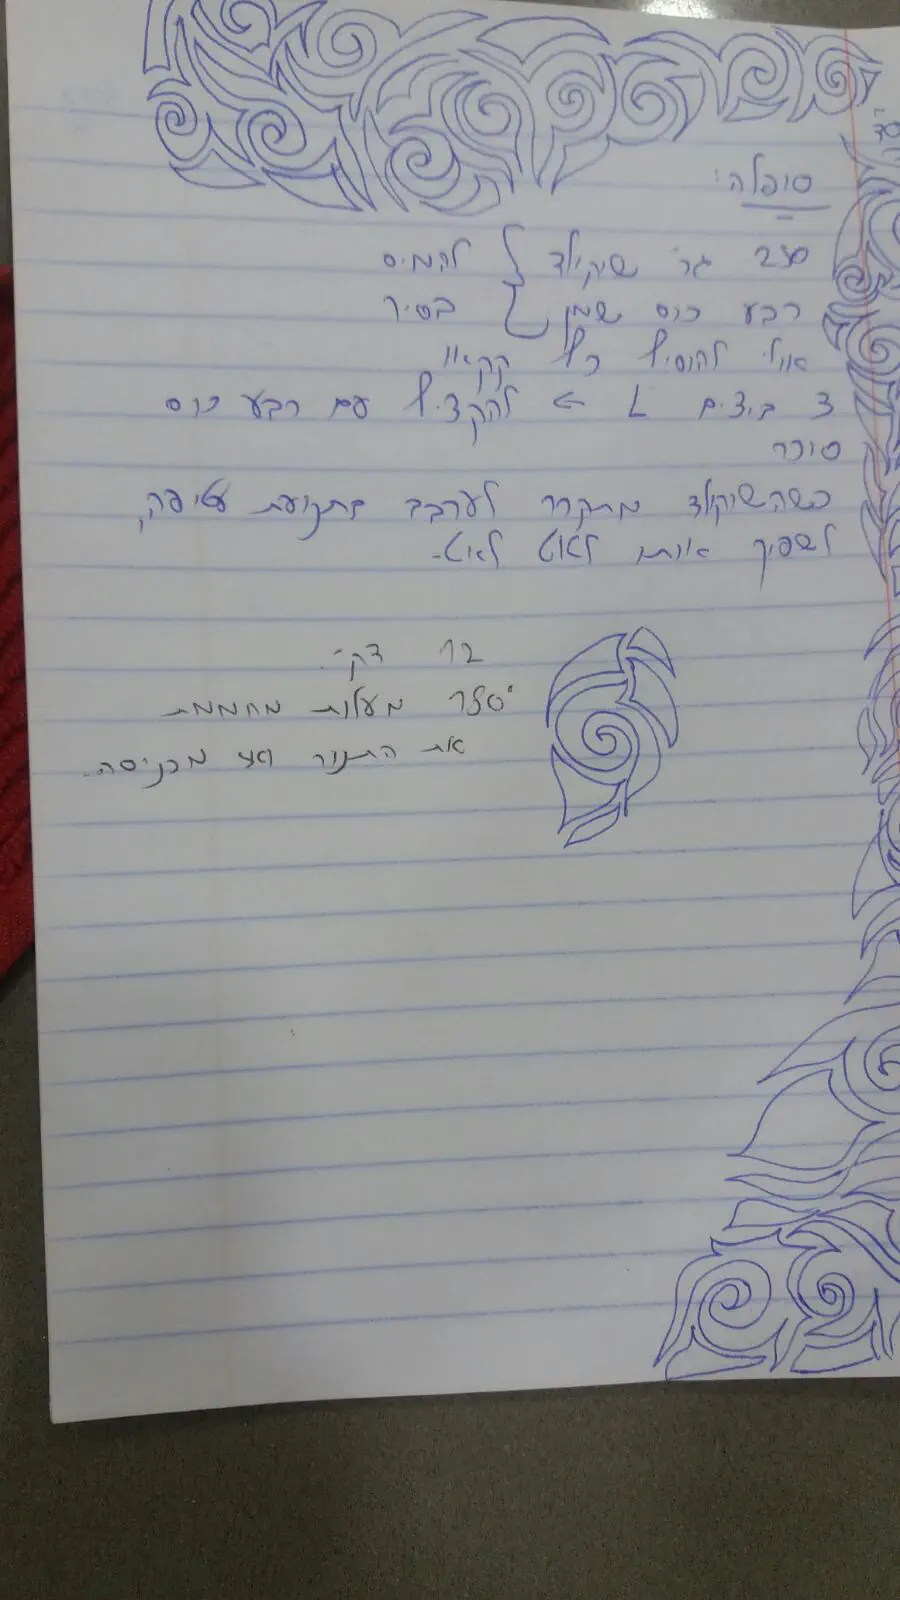 סופלה:
250 גר' שוקולד } להמיס
רבע כוס שמן } בסיר
אולי להוסיף כף קקאו
3 ביצים L → להקציף עם רבע כוס
סוכר
כשהשוקולד מתקרר לערבב בתנועת עטיפה,
לשפוך אותו לאט לאט.
12 דק'.
180° מעלות מחממת
את התנור ואז מכניסה.